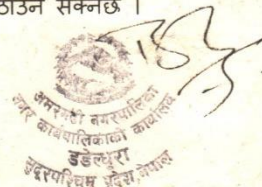 ठाउन सक्नेछ ।
अमरगढी नगरपालिका
नगर कार्यपालिकाको कार्यालय
डडेल्धुरा
सुदूरपश्चिम प्रदेश नेपाल